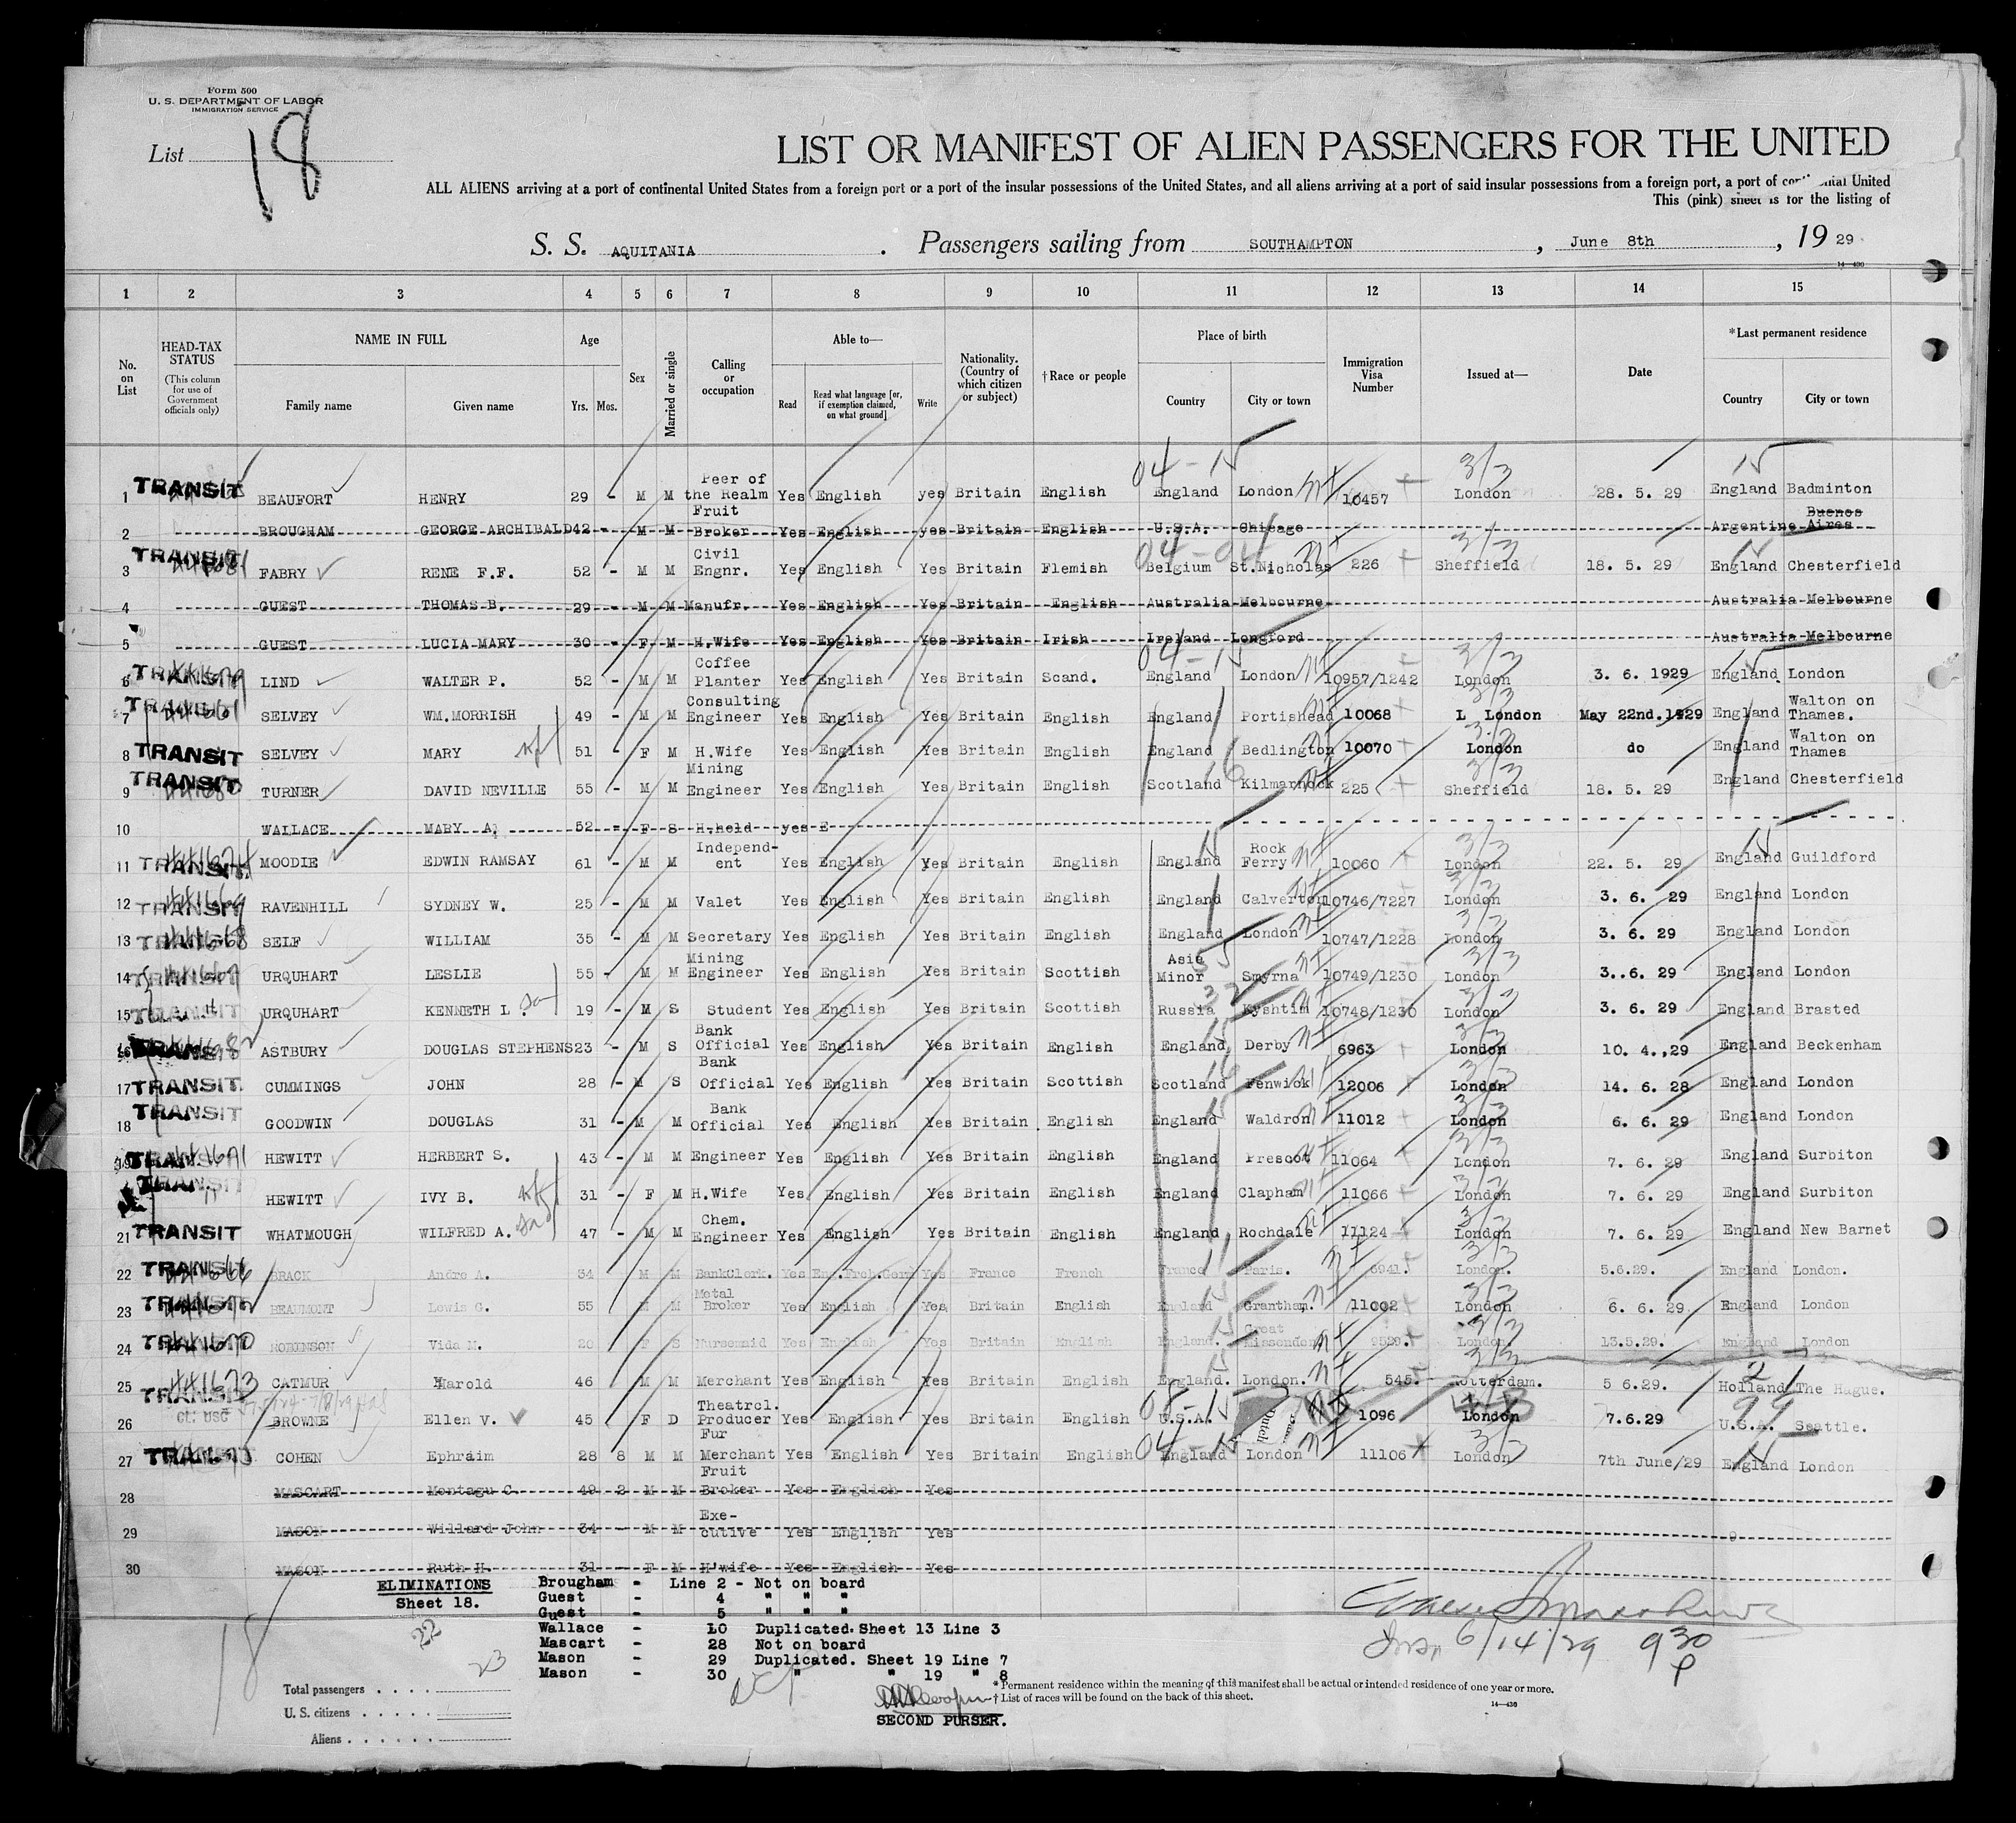 Form 500
U. S. DEPARTMENT OF LABOR
IMMIGRATION SERVICE
List 18
LIST OR MANIFEST OF ALIEN PASSENGERS FOR THE UNITED
ALL ALIENS arriving at a port of continental United States from a foreign port or a port of the insular possessions of the United States, and all aliens arriving at a port of said insular possessions from a foreign port, a port of United
This (pink) sheet is for the listing of
S. S. AQUITANIA . Passengers sailing from SOUTHAMPTON , June 8th , 19 29
14—430
1 2 3 4 5 6 7 8 9 10 11 12 13 14 15
No. on List
HEAD-TAX STATUS (This column for use of Government officials only)
NAME IN FULL
Family name Given name
Age Yrs. Mos.
Sex
Married or single
Calling or occupation
Able to—
Read Read what language [or, if exemption claimed, on what ground] Write
Nationality. (Country of which citizen or subject)
†Race or people
Place of birth
Country City or town
Immigration Visa Number
Issued at—
Date
*Last permanent residence
Country City or town
1 TRANSIT BEAUFORT HENRY 29 - M M Peer of the Realm Yes English yes Britain English England London 10457 London 28. 5. 29 England Badminton
2 BROUGHAM GEORGE ARCHIBALD 42 - M M Fruit Broker Yes English yes Britain English U.S.A. Chicago Argentine Buenos Aires
3 TRANSIT FABRY RENE F.F. 52 - M M Civil Engnr. Yes English Yes Britain Flemish Belgium St.Nicholas 226 Sheffield 18. 5. 29 England Chesterfield
4 GUEST THOMAS B. 29 - M M Manufr. Yes English Yes Britain English Australia Melbourne Australia Melbourne
5 GUEST LUCIA MARY 30 - F M H.Wife Yes English Yes Britain Irish Ireland Longford Australia Melbourne
6 TRANSIT LIND WALTER P. 52 - M M Coffee Planter Yes English Yes Britain Scand. England London 10957/1242 London 3. 6. 1929 England London
7 TRANSIT SELVEY WM.MORRISH 49 - M M Consulting Engineer Yes English Yes Britain English England Portishead 10068 L London May 22nd. 1929 England Walton on Thames.
8 TRANSIT SELVEY MARY 51 - F M H.Wife Yes English Yes Britain English England Bedlington 10070 London do England Walton on Thames
9 TRANSIT TURNER DAVID NEVILLE 55 - M M Mining Engineer Yes English Yes Britain English Scotland Kilmarnock 225 Sheffield 18. 5. 29 England Chesterfield
10 WALLACE MARY A. 52 - F S H.hold yes E
11 TRANSIT MOODIE EDWIN RAMSAY 61 - M M Independent Yes English Yes Britain English England Rock Ferry 10060 London 22. 5. 29 England Guildford
12 TRANSIT RAVENHILL SYDNEY W. 25 - M M Valet Yes English Yes Britain English England Calverton 10746/7227 London 3. 6. 29 England London
13 TRANSIT SELF WILLIAM 35 - M M Secretary Yes English Yes Britain English England London 10747/1228 London 3. 6. 29 England London
14 TRANSIT URQUHART LESLIE 55 - M M Mining Engineer Yes English Yes Britain Scottish Asia Minor Smyrna 10749/1230 London 3..6. 29 England London
15 TRANSIT URQUHART KENNETH L. 19 - M S Student Yes English Yes Britain Scottish Russia Kyshtim 10748/1230 London 3. 6. 29 England Brasted
16 TRANSIT ASTBURY DOUGLAS STEPHENS 23 - M S Bank Official Yes English Yes Britain English England Derby 6963 London 10. 4.,29 England Beckenham
17 TRANSIT CUMMINGS JOHN 28 - M S Bank Official Yes English Yes Britain Scottish Scotland Fenwick 12006 London 14. 6. 28 England London
18 TRANSIT GOODWIN DOUGLAS 31 - M M Bank Official Yes English Yes Britain English England Waldron 11012 London 6. 6. 29 England London
19 TRANSIT HEWITT HERBERT S. 43 - M M Engineer Yes English Yes Britain English England Prescot 11064 London 7. 6. 29 England Surbiton
TRANSIT HEWITT IVY B. 31 - F M H.Wife Yes English Yes Britain English England Clapham 11066 London 7. 6. 29 England Surbiton
21 TRANSIT WHATMOUGH WILFRED A. 47 - M M Chem. Engineer Yes English Yes Britain English England Rochdale 11124 London 7. 6. 29 England New Barnet
22 TRANSIT BRACK Andre A. 34 M M BankClerk. Yes Eng.Frch.Germ Yes France French France Paris. 5941. London. 5.6.29. England London.
23 TRANSIT BEAUMONT Lewis C. 55 M M Metal Broker Yes English Yes Britain English England Grantham. 11002 London 6. 6. 29. England London
24 TRANSIT ROBINSON Vida M. 20 F S Nursemaid Yes English Yes Britain English England. Great Missenden 9529. London 13.5.29. England London
25 TRANSIT CATMUR Harold 46 M M Merchant Yes English Yes Britain English England. London. 545. Rotterdam. 5 6.29. Holland The Hague.
26 CL. USC BROWNE Ellen V. 45 F D Theatrcl. Producer Yes English Yes Britain English U.S.A. Dutch 1096 London 7.6.29 U.S.A. Seattle.
27 TRANSIT COHEN Ephraim 28 8 M M Fur Merchant Yes English Yes Britain English England London 11106 London 7th June/29 England London
28 MASCART Montagu C. 49 2 M M Fruit Broker Yes English Yes
29 MASON Willard John 34 - M M Executive Yes English Yes
30 MASON Ruth H. 31 - F M H'wife Yes English Yes
ELIMINATIONS
Sheet 18.
Brougham - Line 2 - Not on board
Guest - 4 " " "
Guest - 5 " " "
Wallace - 10 Duplicated. Sheet 13 Line 3
Mascart - 28 Not on board
Mason - 29 Duplicated. Sheet 19 Line 7
Mason - 30 " " 19 " 8
18
22
23
6/14/29 9 30 P
Total passengers . . . .
U. S. citizens . . . . .
Aliens . . . . . .
SECOND PURSER.
* Permanent residence within the meaning of this manifest shall be actual or intended residence of one year or more.
† List of races will be found on the back of this sheet.
14—430